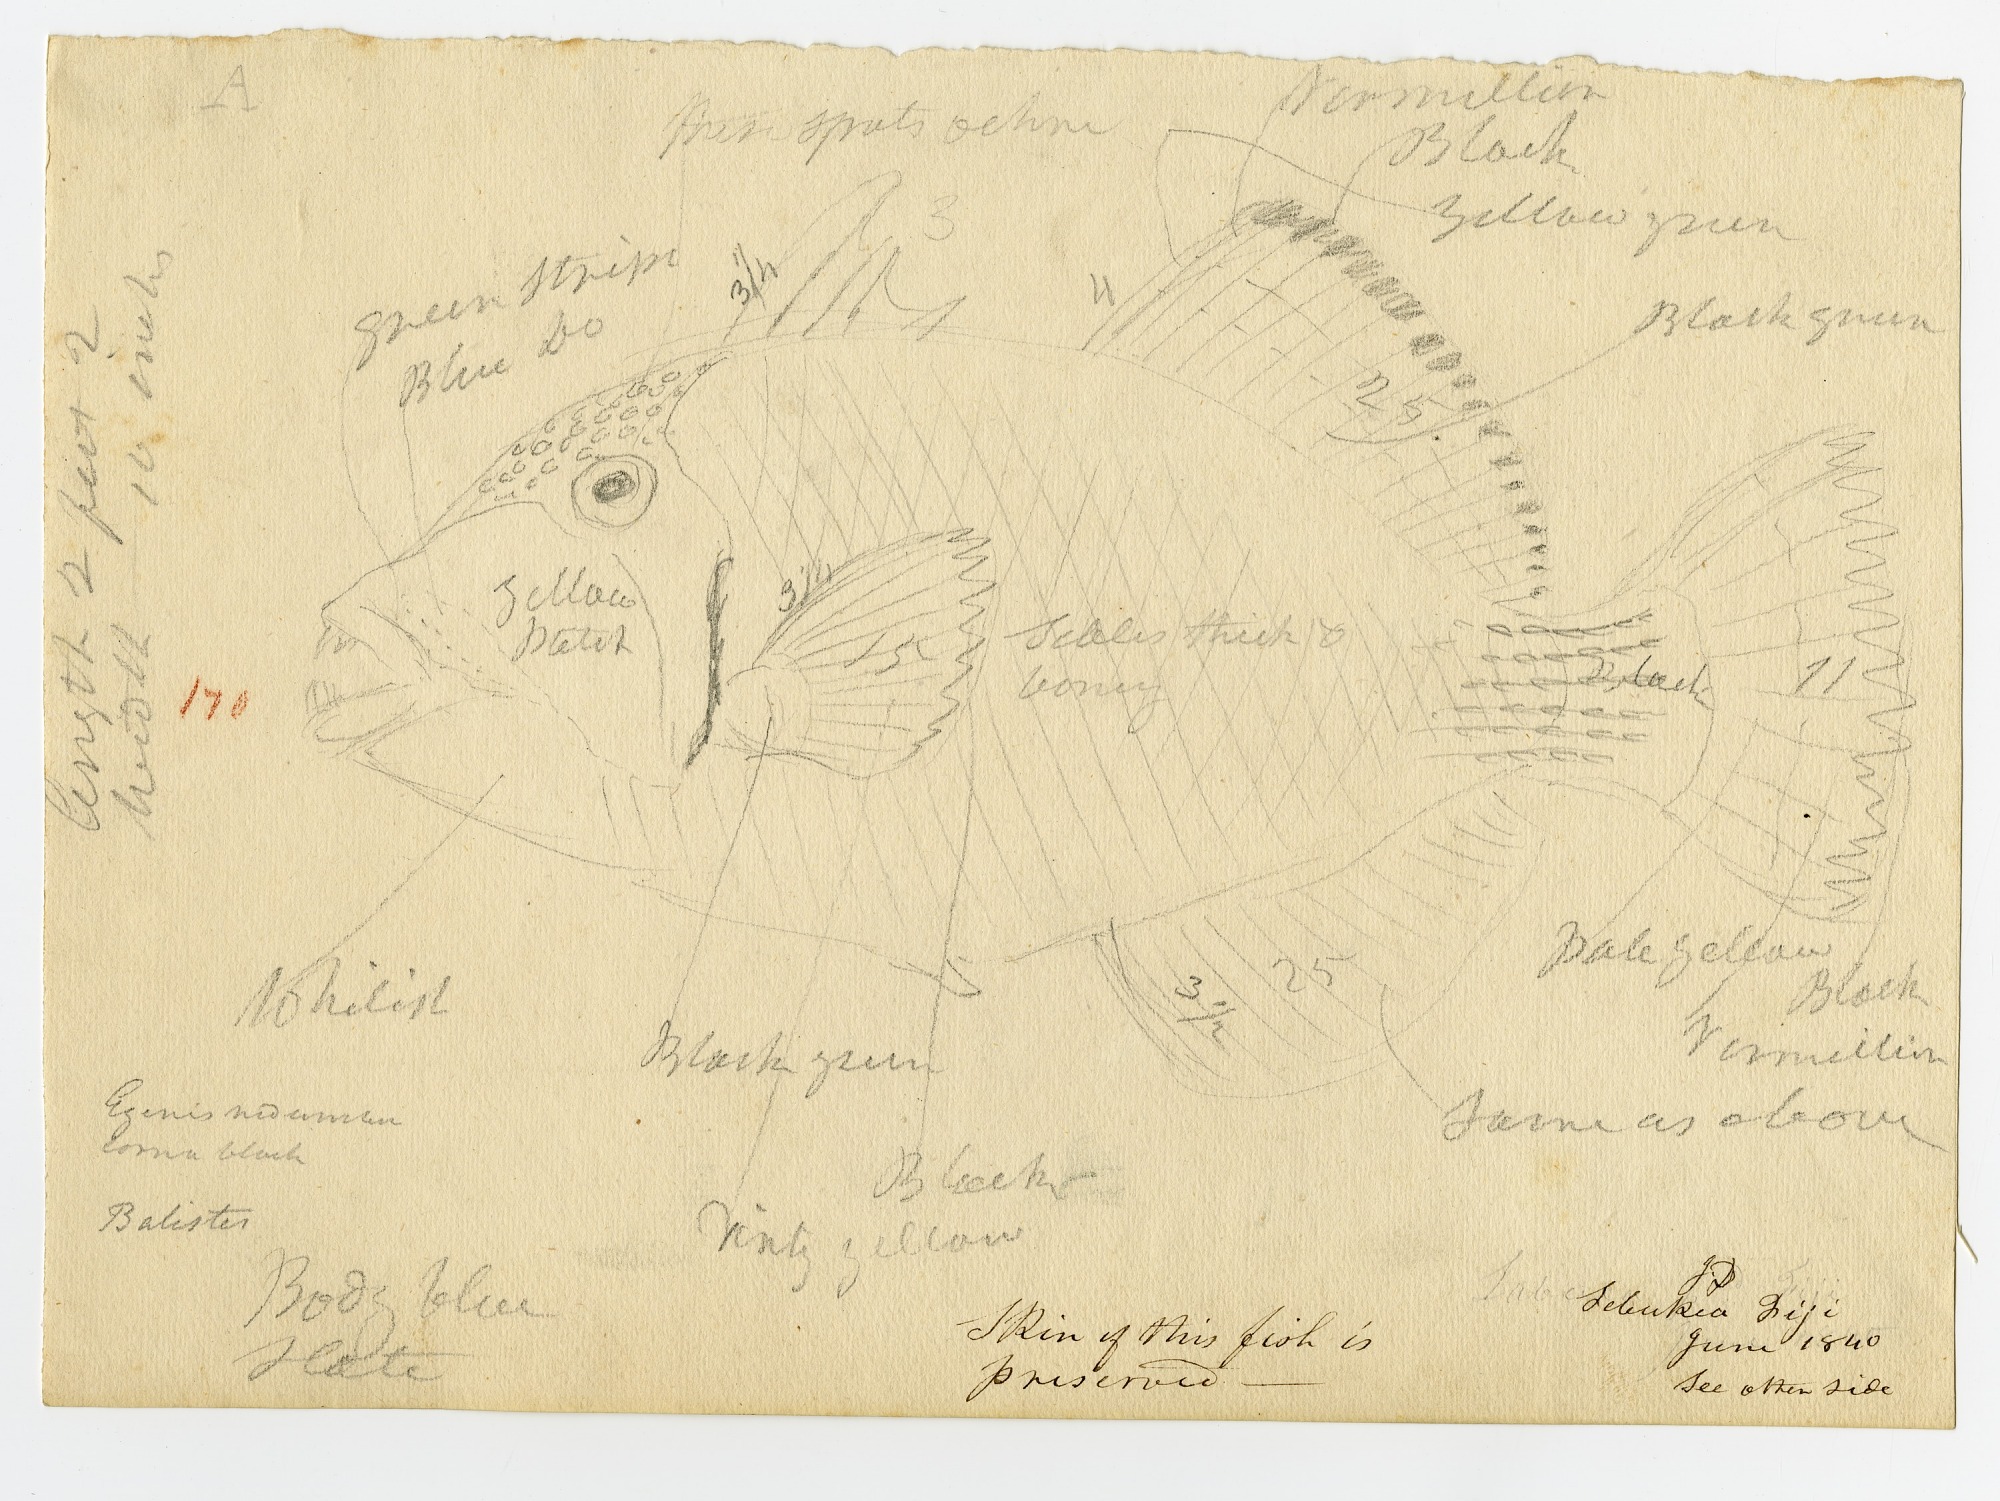 A
these spots ochre
Vermillion
Black
Yellow green
Black green
green stripe
Blue Do
3 1/2
3
11
25
Length 2 feet 2
width 10 inches
Yellow
Patch
3 1/2
15
Scales thick &
boney
Black
11
170
Whitish
Black green
3 1/2
25
Pale yellow
Black
Vermillion
Same as above
black
Balistes
Black
yellow
Body blue
Slate
Skin of this fish is
preserved
Fiji
June 1840
See other side